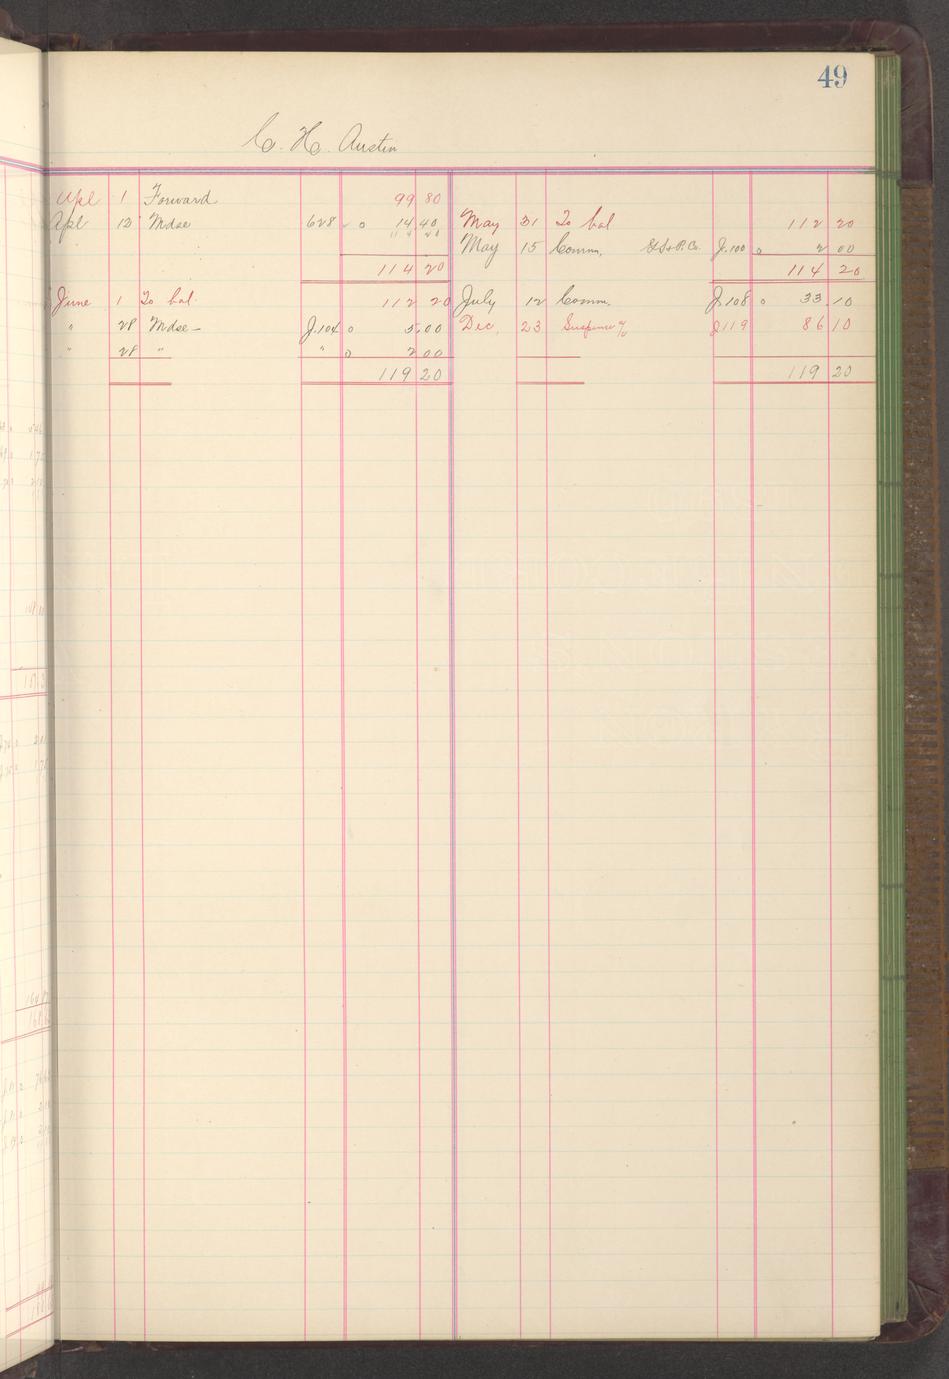 49
C. H. Austin
Apl 1 Forward 99 80
Apl 13 Mdse 628 o 14 40 May 31 To bal 112 20
May 15 Comm. J.100 o 2 00
114 20 114 20
June 1 To bal. 112 20 July 12 Comm. J.108 o 33 10
" 28 Mdse - J.104 o 5.00 Dec. 23 Suspense a/c J119 86 10
" 28 " " o 2 00
119 20 119 20